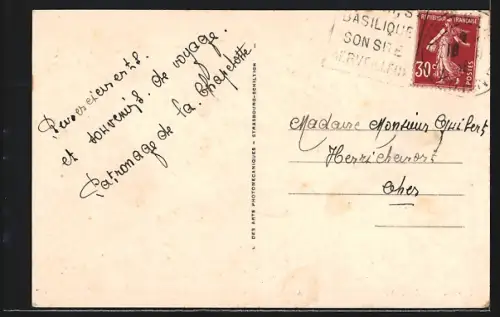 Remerciements
et souvenirs de voyage
Patronage de la Chapelotte
BASILIQUE
SON SITE
MERVEILLEUX
REPUBLIQUE FRANÇAISE
30c
POSTES
Madame Monsieur Guibert
Henrichemont
Cher
DES ARTS PHOTOMECANIQUES - STRASBOURG-SCHILTIGH